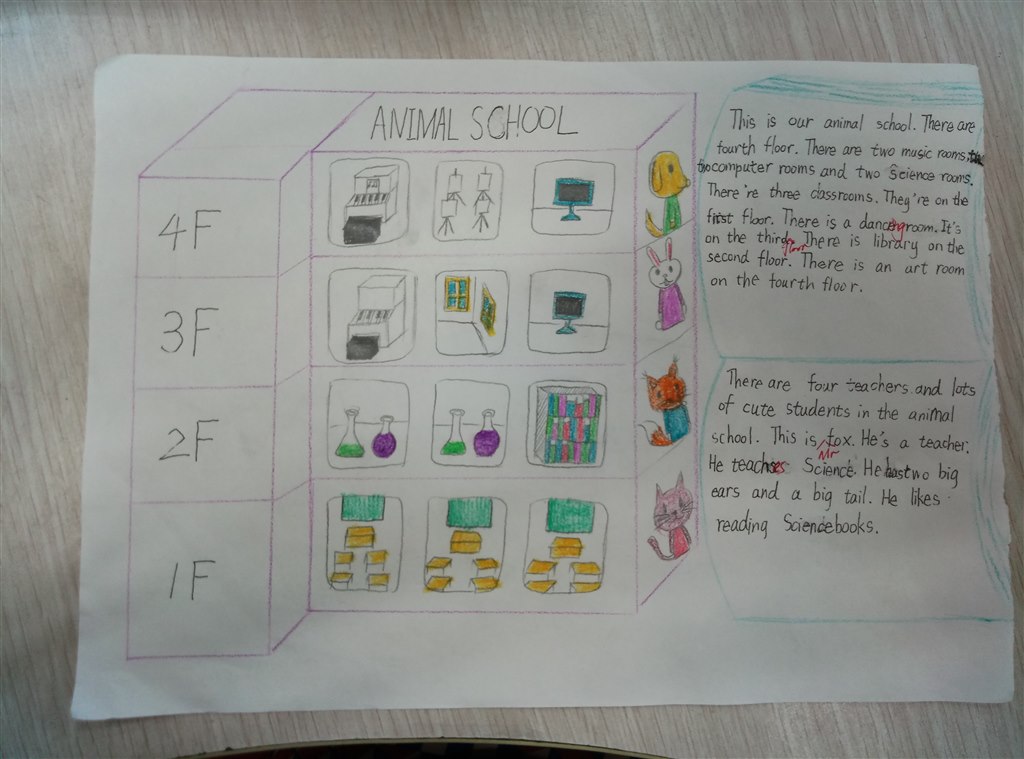 ANIMAL SCHOOL
4F
3F
2F
1F
This is our animal school. There are
fourth floor. There are two music rooms,
two computer rooms and two Science rooms.
There're three classrooms. They're on the
first floor. There is a dancing room. It's
on the third floor. There is library on the
second floor. There is an art room
on the fourth floor.
There are four teachers and lots
of cute students in the animal
school. This is Mr fox. He's a teacher.
He teaches Science. He has two big
ears and a big tail. He likes
reading Science books.